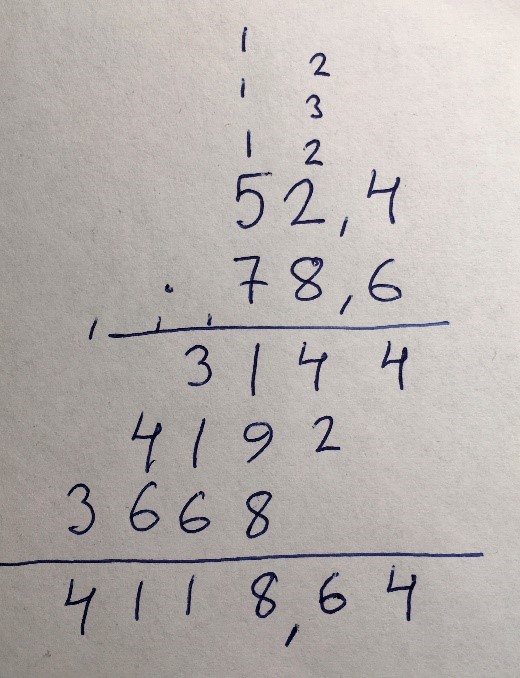 1
2
1
3
1 2
52,4
· 78,6
1 1 1
3144
4192
3668
4118,64